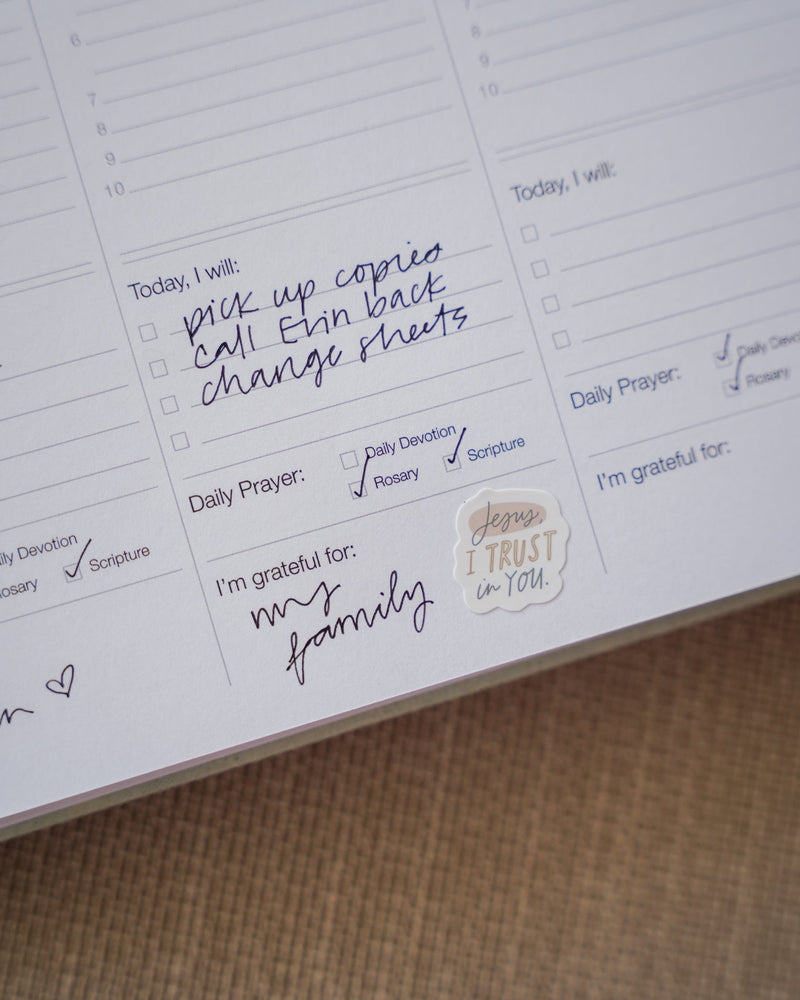 6
7
8
9
10
Today, I will:
pick up copies
call Erin back
change sheets
Daily Prayer:
Daily Devotion
Rosary
Scripture
I'm grateful for:
my
family
Jesus,
I TRUST
in YOU.
7
8
9
10
Today, I will:
Daily Prayer:
Daily
Rosary
I'm grateful for:
Devotion
Scripture